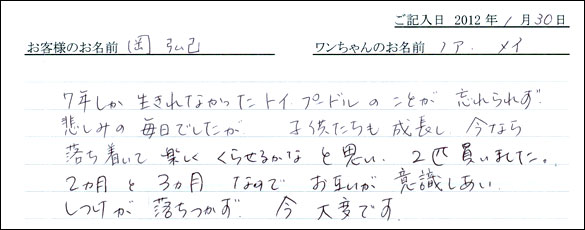 ご記入日 2012 年 1 月 30 日
お客様のお名前 岡 弘己 ワンちゃんのお名前 ノア. メイ
7年しか 生きれなかったトイプードルのことが 忘れられず
悲しみの 毎日でしたが 子供たちも 成長し 今なら
落ち着いて 楽しく くらせるかな と思い. 2匹買いました。
2ヵ月 と 3ヵ月 なので お互いが 意識しあい
しつけが 落ちつかず 今 大変です.